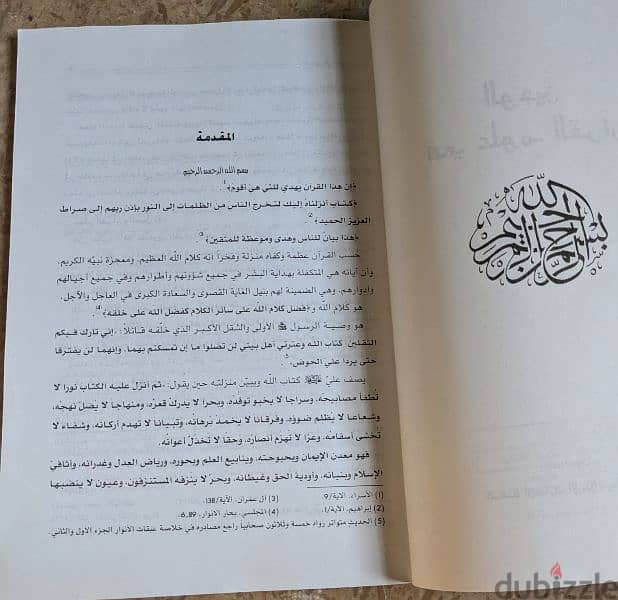 المقدمة
بسم الله الرحمن الرحيم
﴿إن هذا القرآن يهدي للتي هي أقوم﴾(1).
﴿كتاب أنزلناه إليك لتخرج الناس من الظلمات إلى النور بإذن ربهم إلى صراط
العزيز الحميد﴾(2)
﴿هذا بيان للناس وهدى وموعظة للمتقين﴾(3)
حسب القرآن عظمة وكفاه منزلة وفخراً أنه كلام الله العظيم، ومعجزة نبيّه الكريم،
وأن آياته هي المتكفلة بهداية البشر في جميع شؤونهم وأطوارهم وفي جميع أجيالهم
وأدوارهم، وهي الضمينة لهم بنيل الغاية القصوى والسعادة الكبرى في العاجل والآجل.
هو كلام الله و﴿فضل كلام الله على سائر الكلام كفضل الله على خلقه﴾(4)
هو وصية الرسول ﷺ الأولى والثقل الأكبر الذي خلّفه قائلاً: «إني تارك فيكم
الثقلين، كتاب الله وعترتي أهل بيتي لن تضلوا ما إن تمسكتم بهما، وإنهما لن يفترقا
حتى يردا علي الحوض»(5).
يصف عليّ كتاب الله ويبيّن منزلته حين يقول: «ثم أنزل عليه الكتاب نوراً لا
تُطفأ مصابيحه، وسراجاً لا يخبو توقّده، وبحراً لا يدرك قعره، ومنهاجاً لا يُضل نهجه،
وشعاعاً لا يُظلم ضوؤه، وفرقاناً لا يخمد برهانه، وتبياناً لا تهدم أركانه، وشفاء لا
تُخشى أسقامه، وعزّاً لا تهزم أنصاره، وحقاً لا تخذل أعوانه.
فهو معدن الإيمان وبحبوحته، وينابيع العلم وبحوره، ورياض العدل وغدرانه، وأثافيّ
الإسلام وبنيانه، وأودية الحق وغيطانه، وبحرٌ لا ينزفه المستنزفون، وعيون لا ينضبها
(1) الأسراء، الآية/9.
(2) إبراهيم، الآية/1.
(3) آل عمران، الآية/138.
(4) المجلسي، بحار الأنوار، 6،89.
(5) الحديث متواتر رواه خمسة وثلاثون صحابياً راجع مصادره في خلاصة عبقات الأنوار الجزء الأول والثاني.
بسم الله الرحمن الرحيم
dubizzle